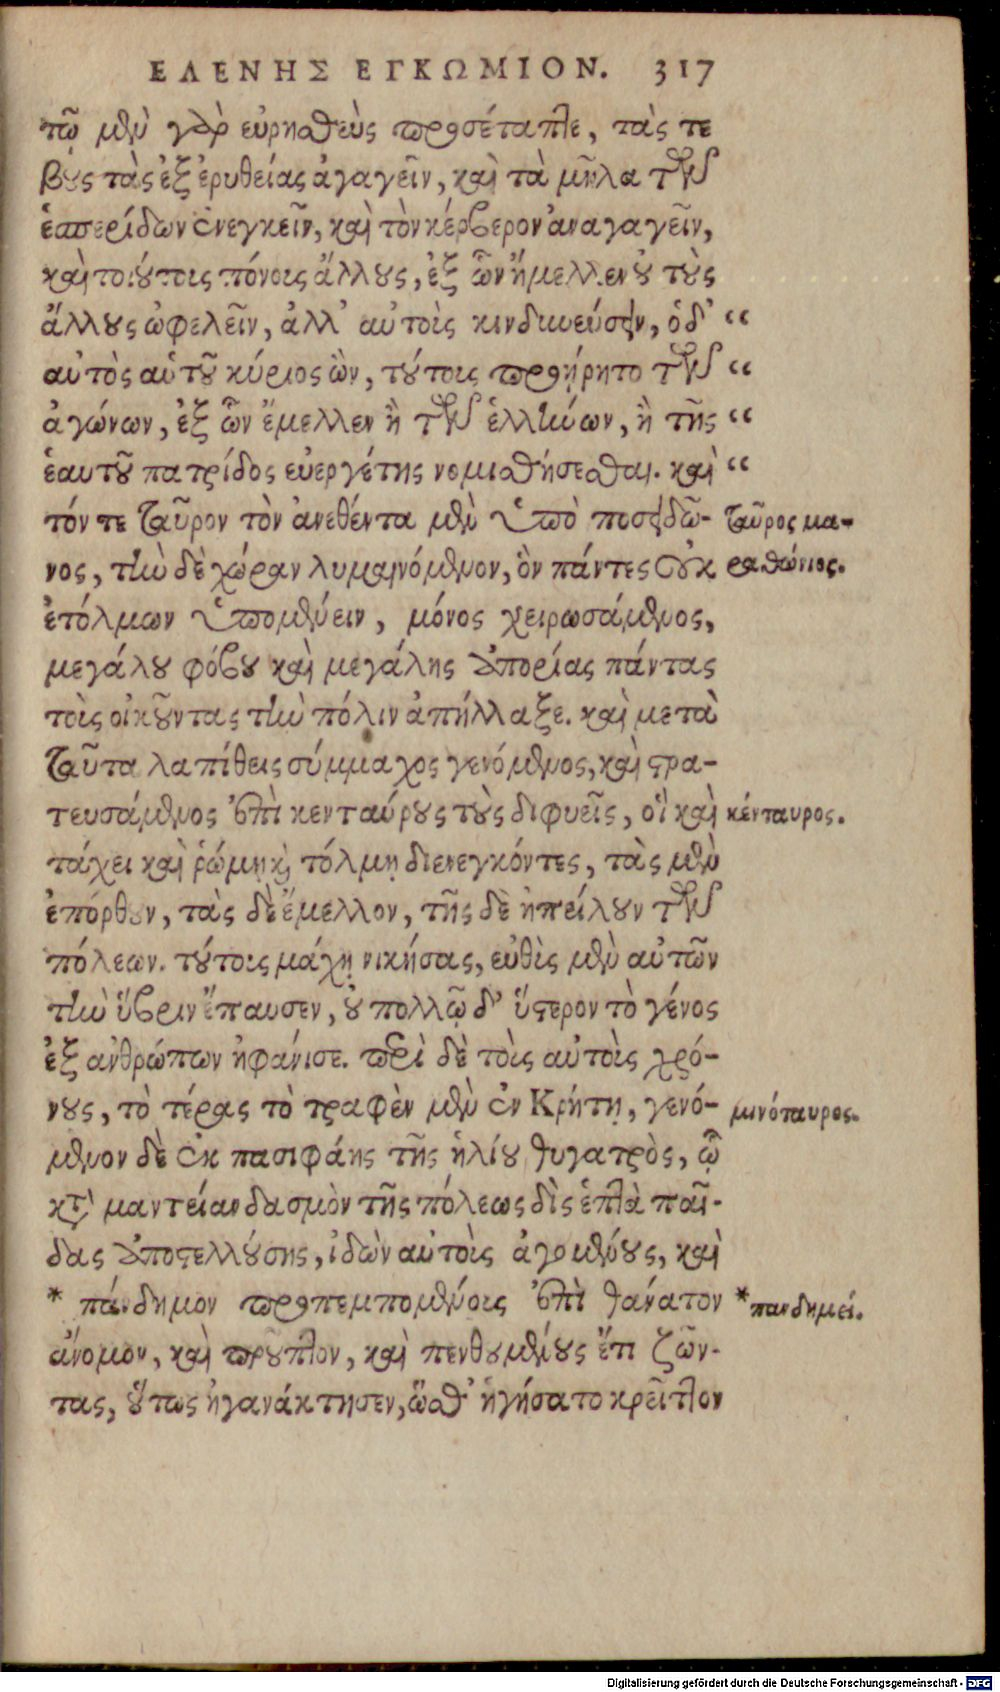 ΕΛΕΝΗΣ ΕΓΚΩΜΙΟΝ. 317
τῷ μὲν γὰρ εὐρησθεὺς προσέταττε, τάς τε
βοῦς τὰς ἐξ ἐρυθείας ἀγαγεῖν, καὶ τὰ μῆλα τῶν
ἑσπερίδων ἐνεγκεῖν, καὶ τὸν κέρβερον ἀναγαγεῖν,
καὶ τοιούτοις πόνοις ἄλλους, ἐξ ὧν ἤμελλεν οὐ τοὺς
ἄλλους ὠφελεῖν, ἀλλ' αὐτοῖς κινδυνεύσειν, ὁ δ' “
αὐτὸς αὑτοῦ κύριος ὢν, τούτοις προῄρητο τῶν “
ἀγώνων, ἐξ ὧν ἔμελλεν ἢ τῶν ἑλλήνων, ἢ τῆς “
ἑαυτοῦ πατρίδος εὐεργέτης νομισθήσεσθαι. καὶ “
τόν τε ταῦρον τὸν ἀνεθέντα μὲν ὑπὸ ποσειδῶ- ταῦρος μα-
νος, τὴν δὲ χώραν λυμαινόμενον, ὃν πάντες οὐκ ραθώνιος.
ἐτόλμων ὑπομένειν, μόνος χειρωσάμενος,
μεγάλου φόβου καὶ μεγάλης ἀπορίας πάντας
τοὺς οἰκοῦντας τὴν πόλιν ἀπήλλαξε. καὶ μετὰ
ταῦτα λαπίθεις σύμμαχος γενόμενος, καὶ στρα-
τευσάμενος ἐπὶ κενταύρους τοὺς διφυεῖς, οἳ καὶ κένταυρος.
τάχει καὶ ῥώμῃ κ τόλμῃ διενεγκόντες, τὰς μὲν
ἐπόρθουν, τὰς δὲ ἔμελλον, τῆς δὲ ἠπείλουν τῶν
πόλεων. τούτοις μάχῃ νικήσας, εὐθὺς μὲν αὐτῶν
τὴν ὕβριν ἔπαυσεν, οὐ πολλῷ δ' ὕστερον τὸ γένος
ἐξ ἀνθρώπων ἠφάνισε. περὶ δὲ τοὺς αὐτοὺς χρό-
νους, τὸ τέρας τὸ τραφὲν μὲν ἐν Κρήτῃ, γενό- μινόταυρος.
μενον δὲ ἐκ πασιφάης τῆς ἡλίου θυγατρὸς, ᾧ
κτ μαντείαν δασμὸν τῆς πόλεως δὶς ἑπτὰ παῖ-
δας ἀποστελλούσης, ἰδὼν αὐτοὺς ἀγομένους, καὶ
* πάνδημον προπεμπομένοις ἐπὶ θάνατον * πανδημεί.
ἄνομον, καὶ προὖπτον, καὶ πενθουμένους ἔτι ζῶν-
τας, οὕτως ἠγανάκτησεν, ὥσθ' ἡγήσατο κρεῖττον
Digitalisierung gefördert durch die Deutsche Forschungsgemeinschaft - DFG